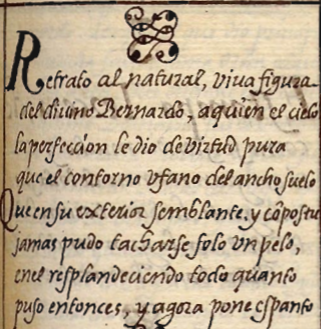 Retrato al natural, viva figura
del divino Bernardo, aquien el cielo
la perfeccion le dio de virtud pura
que el contorno vfano del ancho suelo
Que en su exterior semblante, y cõpostu
jamas pudo tacharse solo vn pelo,
en el resplandeciendo todo quanto
puso entonces, y agora pone espanto